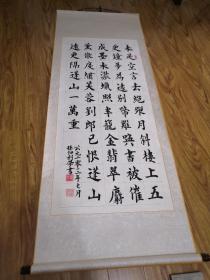 来是空言去絕蹤月斜樓上五
更鐘夢為遠別啼難喚書被催
成墨未濃蠟照半籠金翡翠麝
熏微度繡芙蓉劉郎已恨蓬山
遠更隔蓬山一萬重
公元二零一二年七月